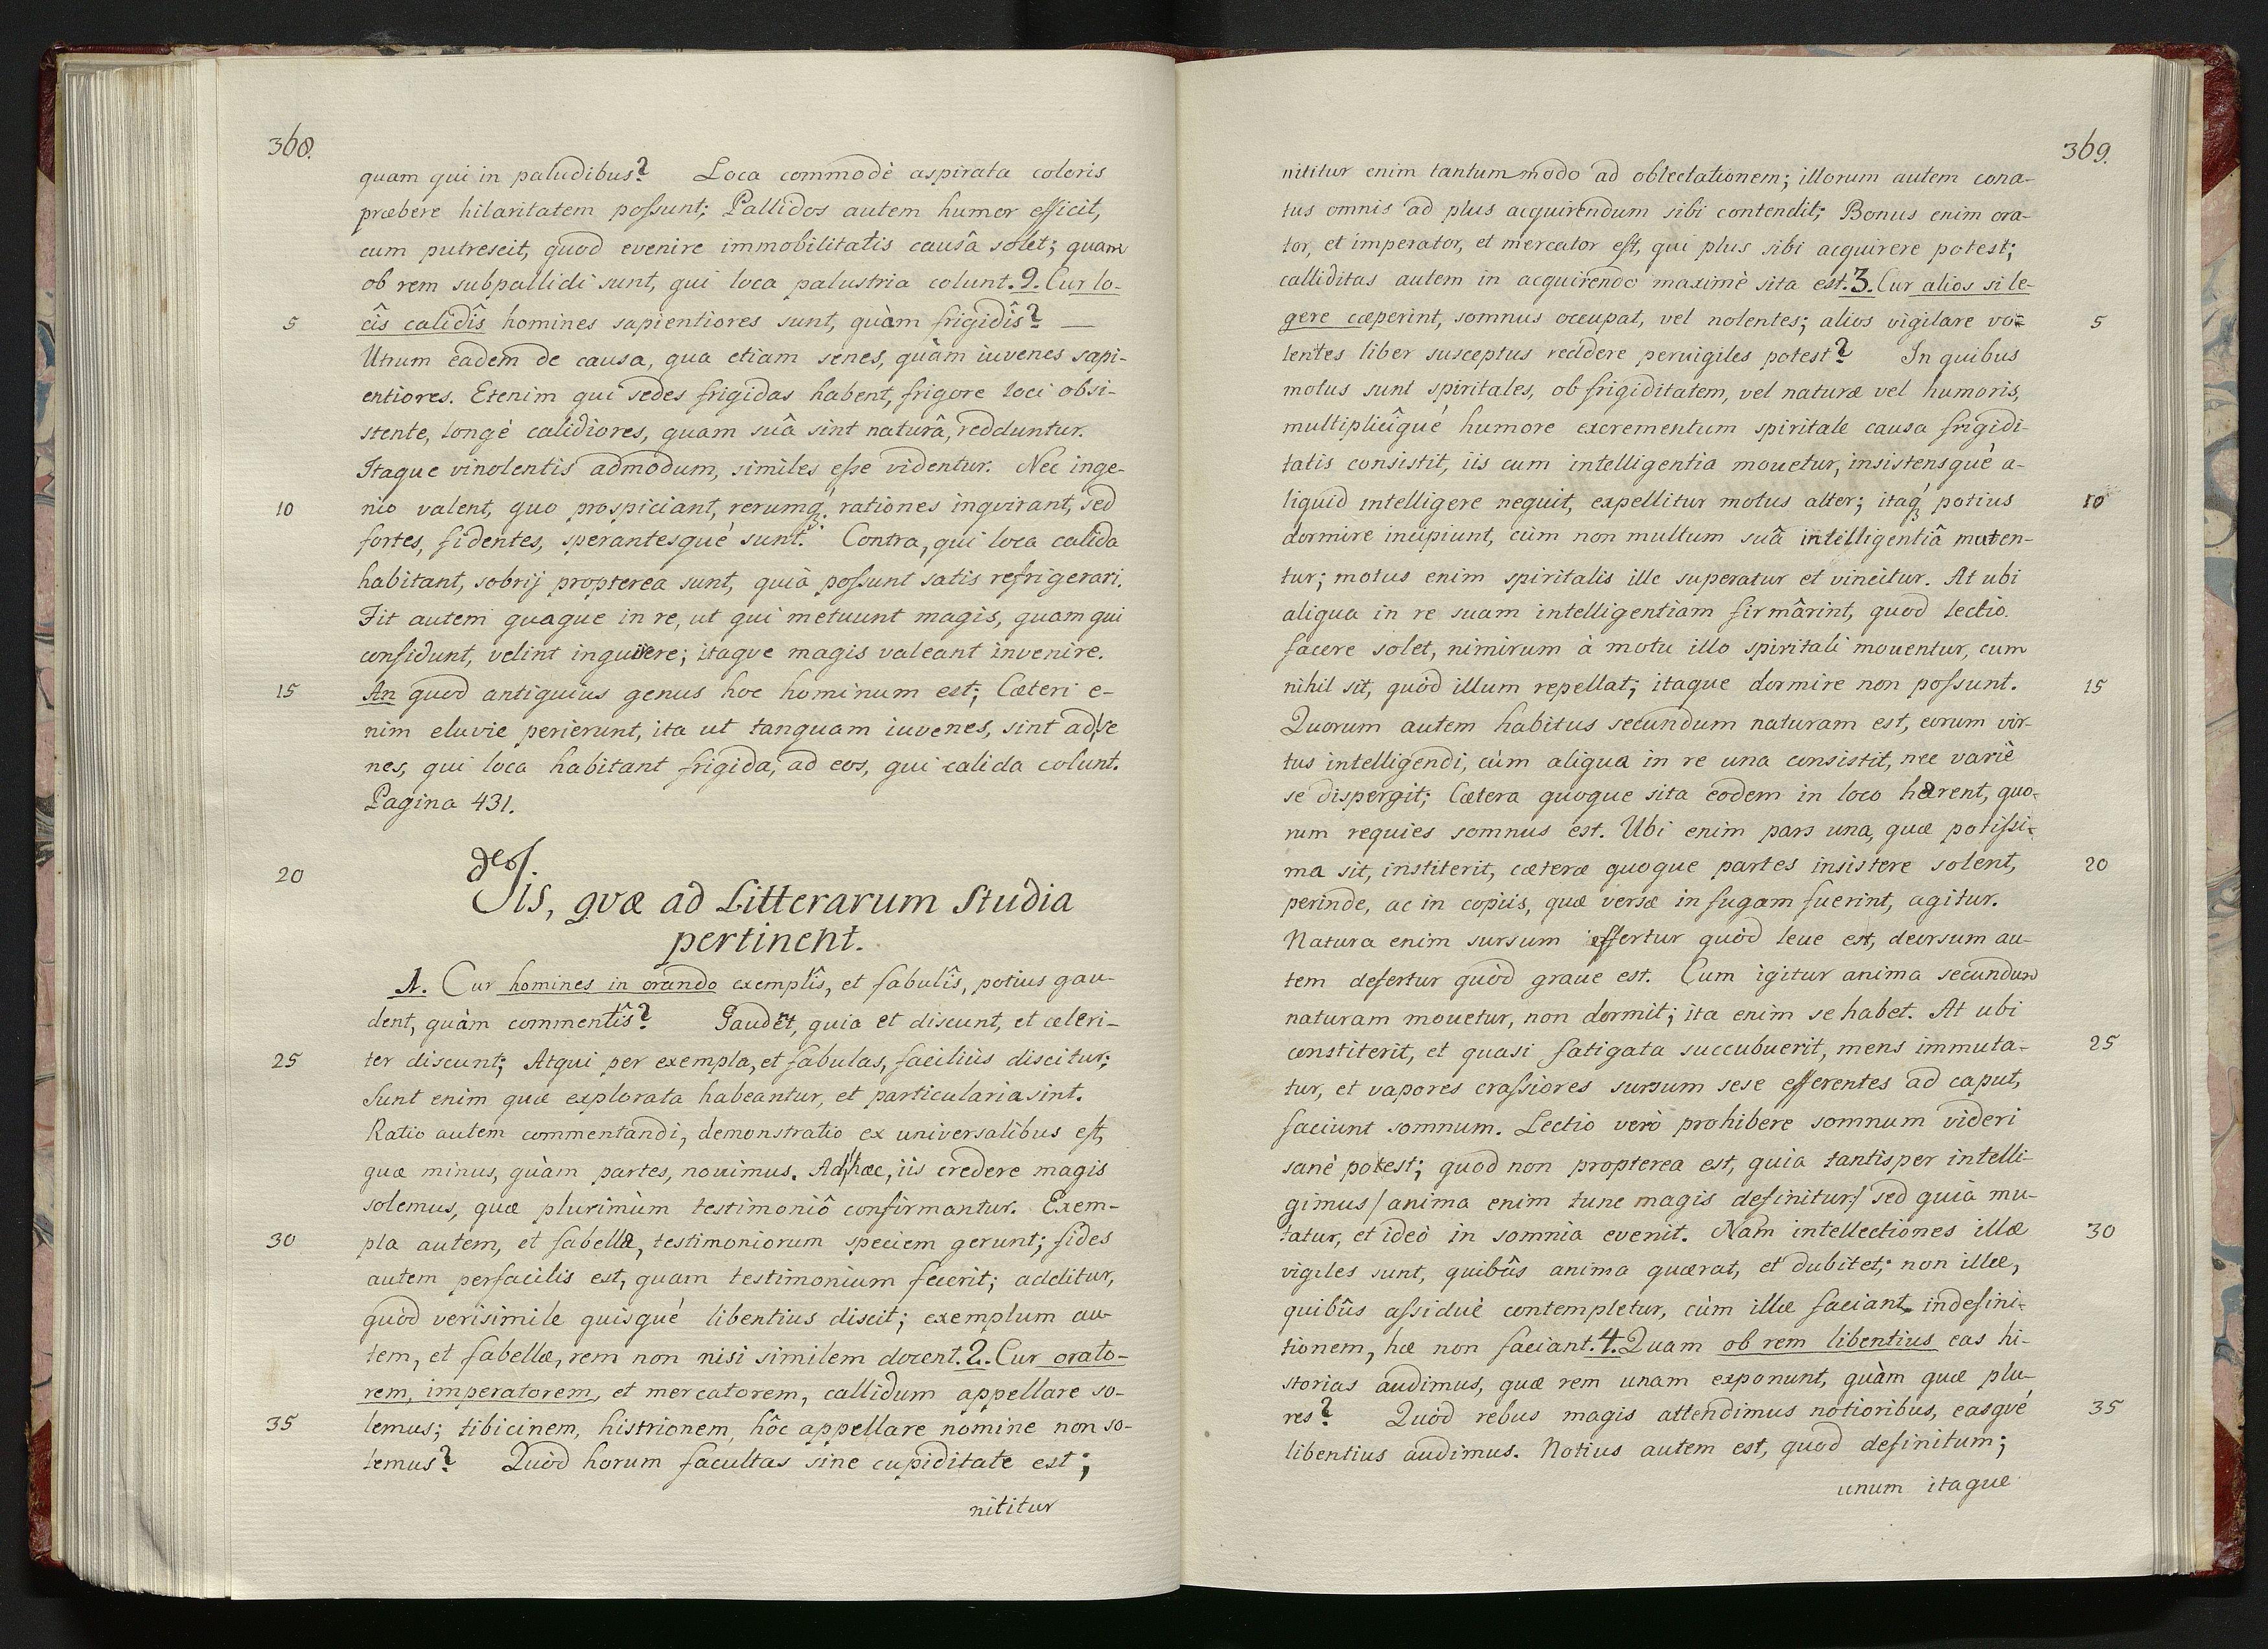 368.
quam qui in paludibus? Loca commodè aspirata coloris
præbere hilaritatem possunt; Pallidos autem humor efficit,
cum putrescit, quod evenire immobilitatis causâ solet; quam
ob rem subpallidi sunt, qui loca palustria colunt. 9. Cur lo-
5 cîs calidîs homines sapientiores sunt, quàm frigidîs? —
Utrum eadem de causa, qua etiam senes, quàm iuvenes sapi-
entiores. Etenim qui sedes frigidas habent, frigore loci obsi-
stente, longè calidiores, quam suâ sint naturâ, redduntur.
Itaque vinolentis admodum, similes esse videntur. Nec inge-
10 nio valent, quo prospiciant, rerumq; rationes inqvirant, sed
fortes, fidentes, sperantesquè sunt. Contra, qui loca calida
habitant, sobrij propterea sunt, quià possunt satis refrigerari.
Fit autem quaque in re, ut qui metuunt magis, quam qui
confidunt, velint inquirere; itaqve magis valeant invenire.
15 An quod antiquius genus hoc hominum est; Cæteri e-
nim eluvie perierunt, ita ut tanquam iuvenes, sint ad se
nes, qui loca habitant frigida, ad eos, qui calida colunt.
Pagina 431.
20 de Iis, qvæ ad Litterarum Studia
pertinent.
1. Cur homines in orando exemplîs, et fabulîs, potius gau-
dent, quàm commentîs? Gaudēt, quia et discunt, et celeri-
25 ter discunt; Atqui per exempla, et fabulas, faciliùs discitur;
Sunt enim quæ explorata habeantur, et particularia sint.
Ratio autem commentandi, demonstratio ex universalibus est,
quæ minus, quàm partes, nouimus. Ad hæc, iis credere magis
solemus, quæ plurimùm testimoniô confirmantur. Exem-
30 pla autem, et fabellæ, testimoniorum speciem gerunt; fides
autem perfacilis est, quam testimonium fecerit; additur,
quòd verisimile quisquè libentius discit; exemplum au-
tem, et fabellæ, rem non nisi similem docent. 2. Cur orato-
rem, imperatorem, et mercatorem, callidum appellare so-
35 lemus; tibicinem, histrionem, hôc appellare nomine non so-
lemus? Quòd horum facultas sine cupiditate est;
nititur
369.
nititur enim tantummodo ad oblectationem; illorum autem cona-
tus omnis ad plus acquirendum sibi contendit; Bonus enim ora-
tor, et imperator, et mercator est, qui plus sibi acquirere potest;
calliditas autem in acquirendo maximè sita est. 3. Cur alios si le-
gere cæperint, somnus occupat, vel nolentes; alios vigilare vo- 5
lentes liber susceptus reddere peruigiles potest? In quibus
motus sunt spiritales, ob frigiditatem, vel naturæ vel humoris,
multiplicîquè humore excrementum spiritale causa frigidi-
tatis consistit, iis cum intelligentia mouetur, insistensquè a-
liquid intelligere nequit, expellitur motus alter; itaq; potius 10
dormire incipiunt, cùm non multum suâ intelligentiâ muten-
tur; motus enim spiritalis ille superatur et vincitur. At ubi
aliqua in re suam intelligentiam firmârint, quod lectio
facere solet, nimirum à motu illo spiritali mouentur, cum
nihil sit, quòd illum repellat; itaque dormire non possunt. 15
Quorum autem habitus secundum naturam est, eorum vir-
tus intelligendi, cùm aliqua in re una consistit, nec variè
se dispergit; Cætera quoque sita eodem in loco hærent, quo-
rum requies somnus est. Ubi enim pars una, quæ potissi-
ma sit, institerit, cæteræ quoque partes insistere solent, 20
perinde, ac in copiis, quæ versæ in fugam fuerint, agitur.
Natura enim sursum effertur quòd leue est, deorsum au-
tem defertur quòd graue est. Cum igitur anima secundum
naturam mouetur, non dormit; ita enim se habet. At ubi
constiterit, et quasi fatigata succubuerit, mens immuta- 25
tur, et vapores crassiores sursum sese efferentes ad caput,
faciunt somnum. Lectio verò prohibere somnum videri
sanè potest; quod non propterea est, quia tantisper intelli-
gimus / anima enim tunc magis definitur / sed quia mu-
tatur, et ideò in somnia evenit. Nam intellectiones illæ 30
vigiles sunt, quibûs anima quærat, et dubitet; non illæ,
quibûs assiduè contempletur, cùm illæ faciant indefini-
tionem, hæ non faciant. 4. Quam ob rem libentius eas hi-
storias audimus, quæ rem unam exponunt, quàm quæ plu-
res? Quòd rebus magis attendimus notioribus, easqvé 35
libentius audimus. Notius autem est, quod definitum;
unum itaque